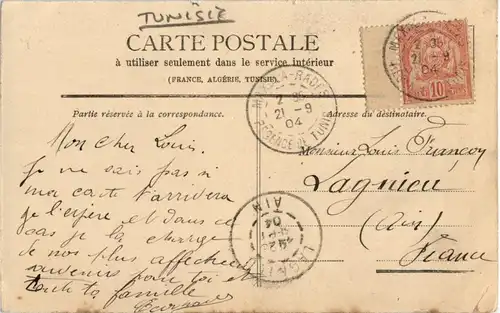 TUNISIE
CARTE POSTALE
à utiliser seulement dans le service intérieur
(FRANCE, ALGÉRIE, TUNISIE).
Partie réservée à la correspondance.
Adresse du destinataire.
2
21 - 9
04
RÉGENCE DE TUNIS
10
Mon cher Louis.
Je ne sais pas si
ma carte t'arrivera
je l'espère et dans ce
cas je la charge
de nos plus affectueux
souvenirs pour toi et
toute ta famille
Monsieur Louis Françon
Lagnieu
(Ain)
France
LAGNIEU
AIN
04